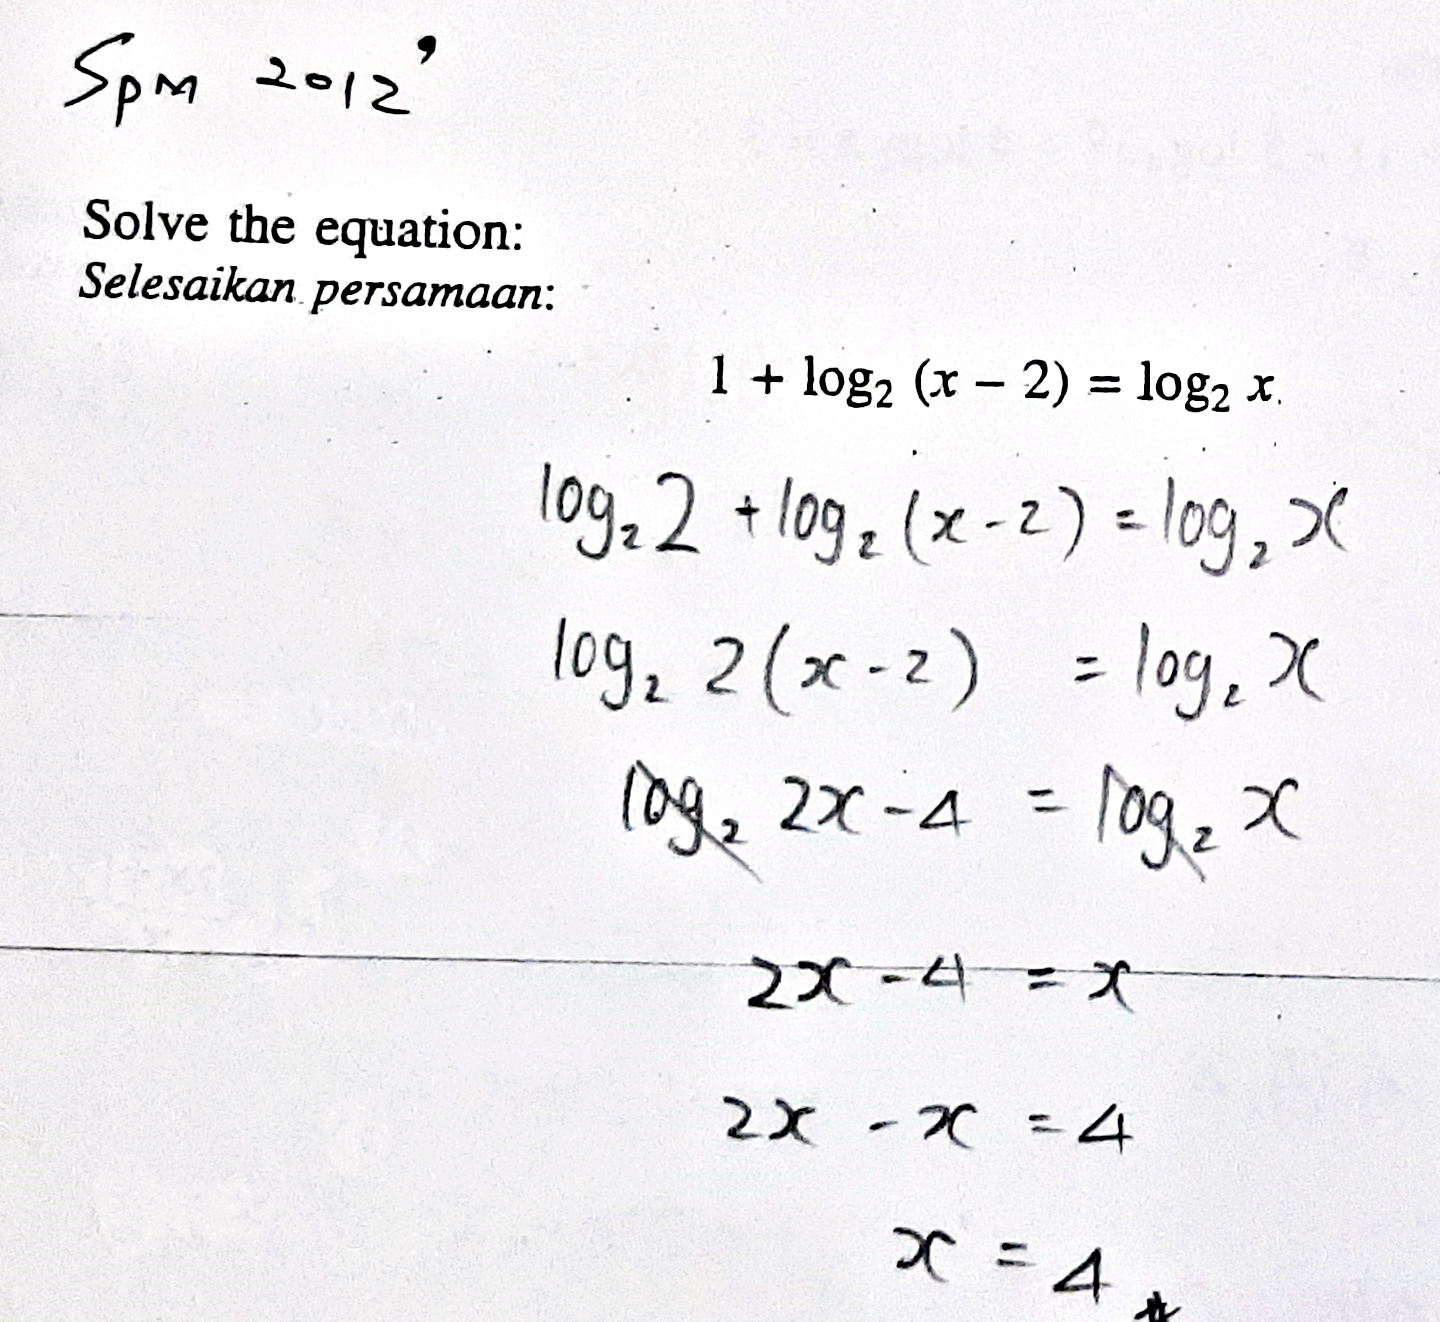 SPM 2012'
Solve the equation:
Selesaikan persamaan:
1 + log₂ (x – 2) = log₂ x.
log₂ 2 + log₂ (x - 2) = log₂ x
log₂ 2(x - 2) = log₂ x
log₂ 2x - 4 = log₂ x
2x - 4 = x
2x - x = 4
x = 4 #